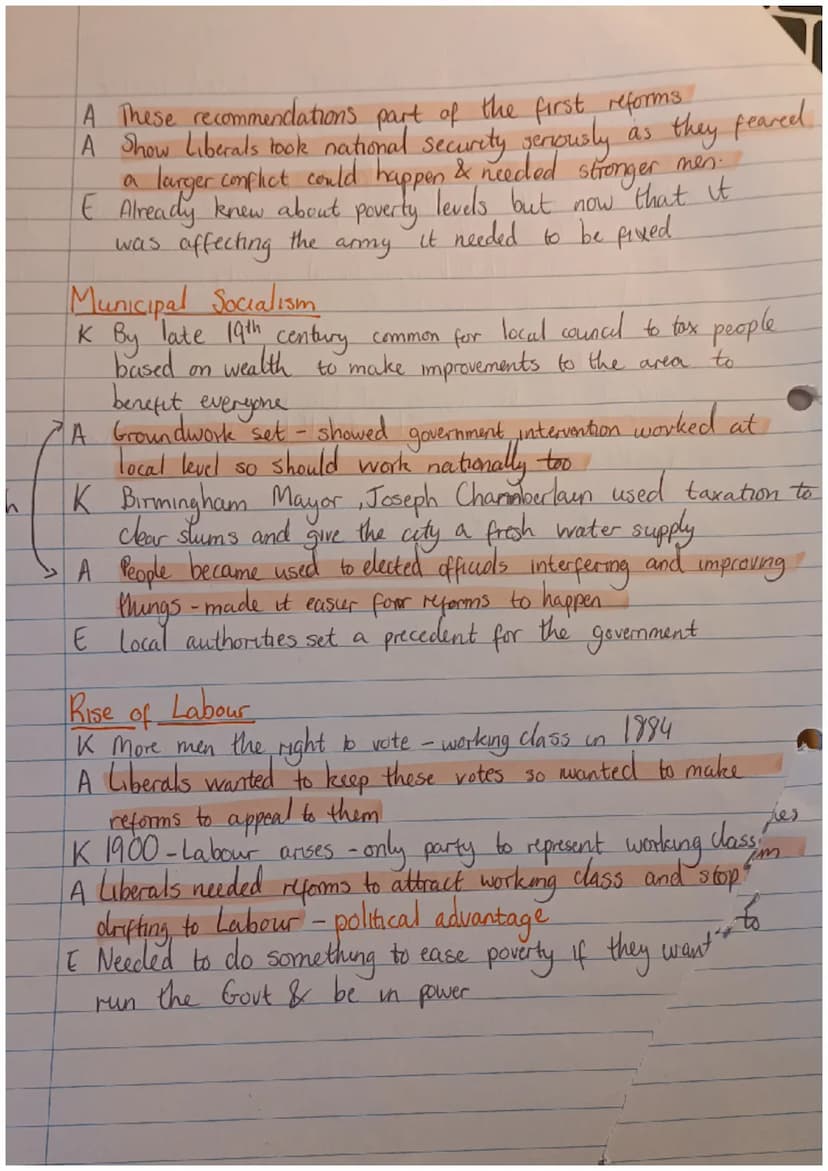 A These recommendations part of the first reforms
A Show Liberals took national security seriously as they feared
a larger conflict could happen & needed stronger men.
E Already knew about poverty levels but now that it
was affecting the army it needed to be fixed
Municipal Socialism
K By late 19th century common for local council to tax people
based on wealth to make improvements to the area to
benefit everyone
A Groundwork set - showed government intervention worked at
local level so should work nationally too
h K Birmingham Mayor, Joseph Chamberlain used taxation to
clear slums and give the city a fresh water supply
A People became used to elected officials interfering and improving
things - made it easier for reforms to happen
E Local authorities set a precedent for the government
Rise of Labour
K More men the right to vote - working class in 1884
A Liberals wanted to keep these votes so wanted to make
reforms to appeal to them
K 1900 - Labour arises - only party to represent working class
A Liberals needed reforms to attract working class and stop
drifting to Labour - political advantage
E Needed to do something to ease poverty if they want to
run the Govt & be in power